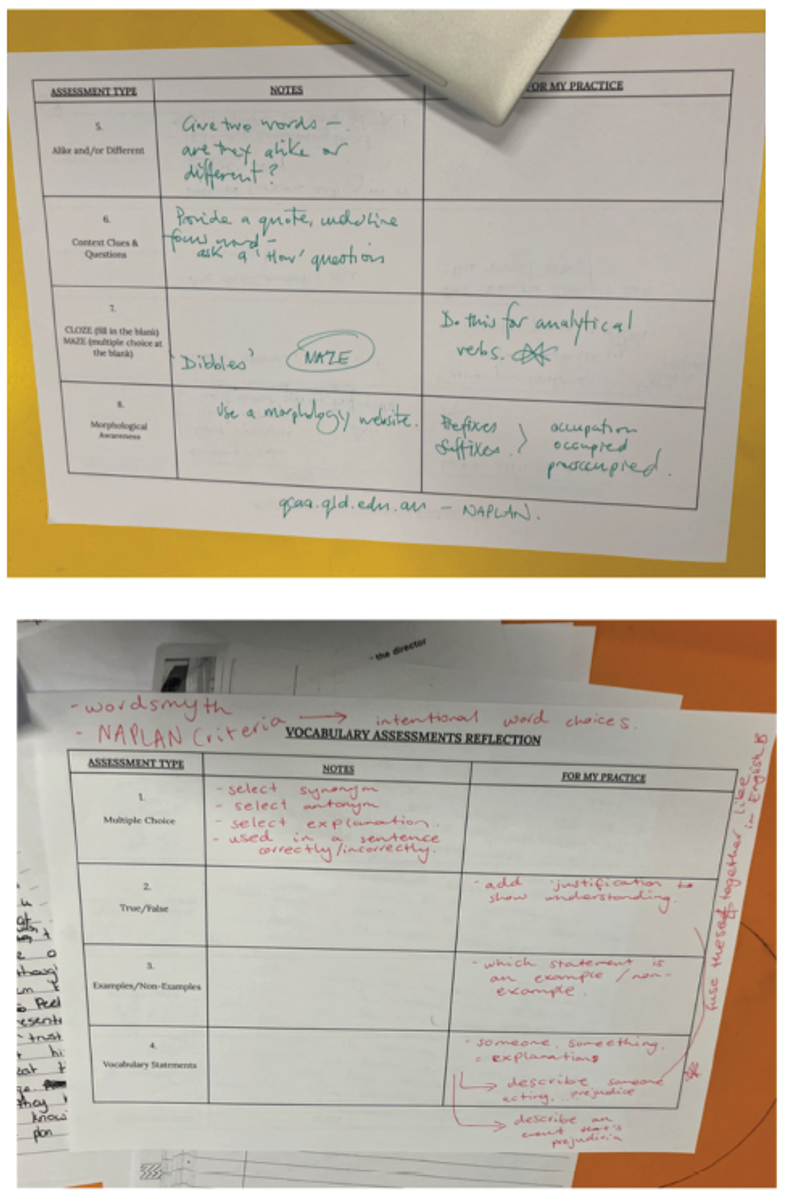 ASSESSMENT TYPE
NOTES
FOR MY PRACTICE
5.
Alike and/or Different
Give two words –
are they alike or
different?
6.
Context Clues &
Questions
Provide a quote, underline
focus word –
ask a 'How' questions
7.
CLOZE (fill in the blank)
MAZE (multiple choice at
the blank)
'Dibbles'
NAZE
Do this for analytical
verbs.
8.
Morphological
Awareness
Use a morphology website.
Prefixes
Suffixes
occupation
occupied
preoccupied.
qcaa.qld.edu.au – NAPLAN.
- the director
- wordsmyth
- NAPLAN Criteria → intentional word choices.
VOCABULARY ASSESSMENTS REFLECTION
ASSESSMENT TYPE
NOTES
FOR MY PRACTICE
1.
Multiple Choice
- select synonym
- select antonym
- select explanation.
- used in a sentence
correctly/incorrectly.
2.
True/False
- add justification to
show understanding.
3.
Examples/Non-Examples
- which statement is
an example / non-
example.
4.
Vocabulary Statements
- someone, something,
= explanations
→ describe someone
acting.. prejudice
→ describe an
event that's
fuse these together like
in English
trust
they
know
plan